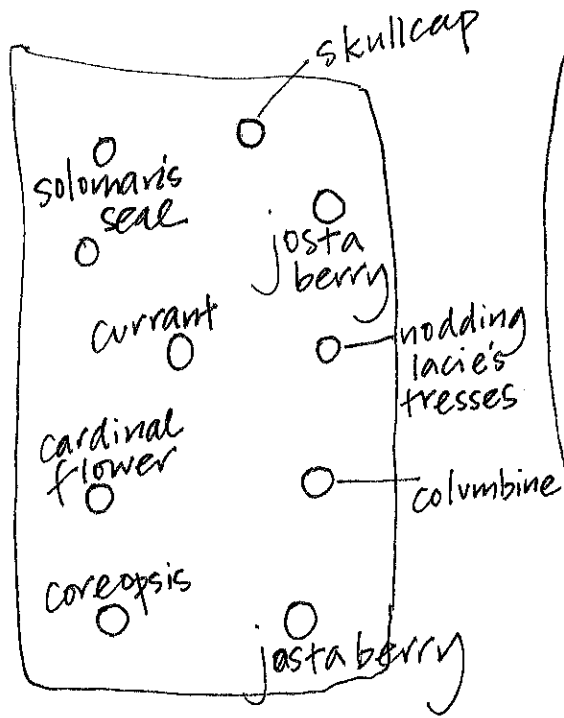 skullcap
solomon's
seal
josta
berry
currant
nodding
lacie's
tresses
cardinal
flower
columbine
coreopsis
jostaberry